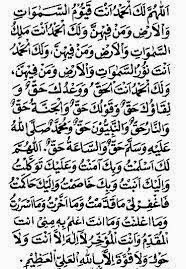 اَللّٰهُمَّ لَكَ الْحَمْدُ اَنْتَ قَيُّوْمُ السَّمٰوَاتِ
وَالْاَرْضِ وَمَنْ فِيْهِنَّ، وَلَكَ الْحَمْدُ اَنْتَ مَلِكُ
السَّمٰوَاتِ وَالْاَرْضِ وَمَنْ فِيْهِنَّ، وَلَكَ الْحَمْدُ
اَنْتَ نُوْرُ السَّمٰوَاتِ وَالْاَرْضِ وَمَنْ فِيْهِنَّ
وَلَكَ الْحَمْدُ اَنْتَ الْحَقُّ وَوَعْدُكَ حَقٌّ وَ
لِقَاؤُكَ حَقٌّ وَقَوْلُكَ حَقٌّ وَالْجَنَّةُ حَقٌّ
وَالنَّارُحَقٌّ وَالنَّبِيُّوْنَ حَقٌّ وَمُحَمَّدٌ صَلَّى اللهُ
عَلَيْهِ وَسَلَّمَ حَقٌّ وَالسَّاعَةُ حَقٌّ. اَللّٰهُمَّ
لَكَ اَسْلَمْتُ وَبِكَ اٰمَنْتُ وَعَلَيْكَ تَوَكَّلْتُ
وَاِلَيْكَ اَنَبْتُ وَبِكَ خَاصَمْتُ وَاِلَيْكَ حَاكَمْتُ
فَاغْفِرْلِيْ مَا قَدَّمْتُ وَمَا اَخَّرْتُ وَمَا اَسْرَرْتُ
وَمَا اَعْلَنْتُ وَمَا اَنْتَ اَعْلَمُ بِهِ مِنِّيْ اَنْتَ
الْمُقَدِّمُ وَاَنْتَ الْمُؤَخِّرُ لَا اِلٰهَ اِلَّا اَنْتَ وَلَا
حَوْلَ وَلَا قُوَّةَ اِلَّا بِاللهِ الْعَلِيِّ الْعَظِيْمِ